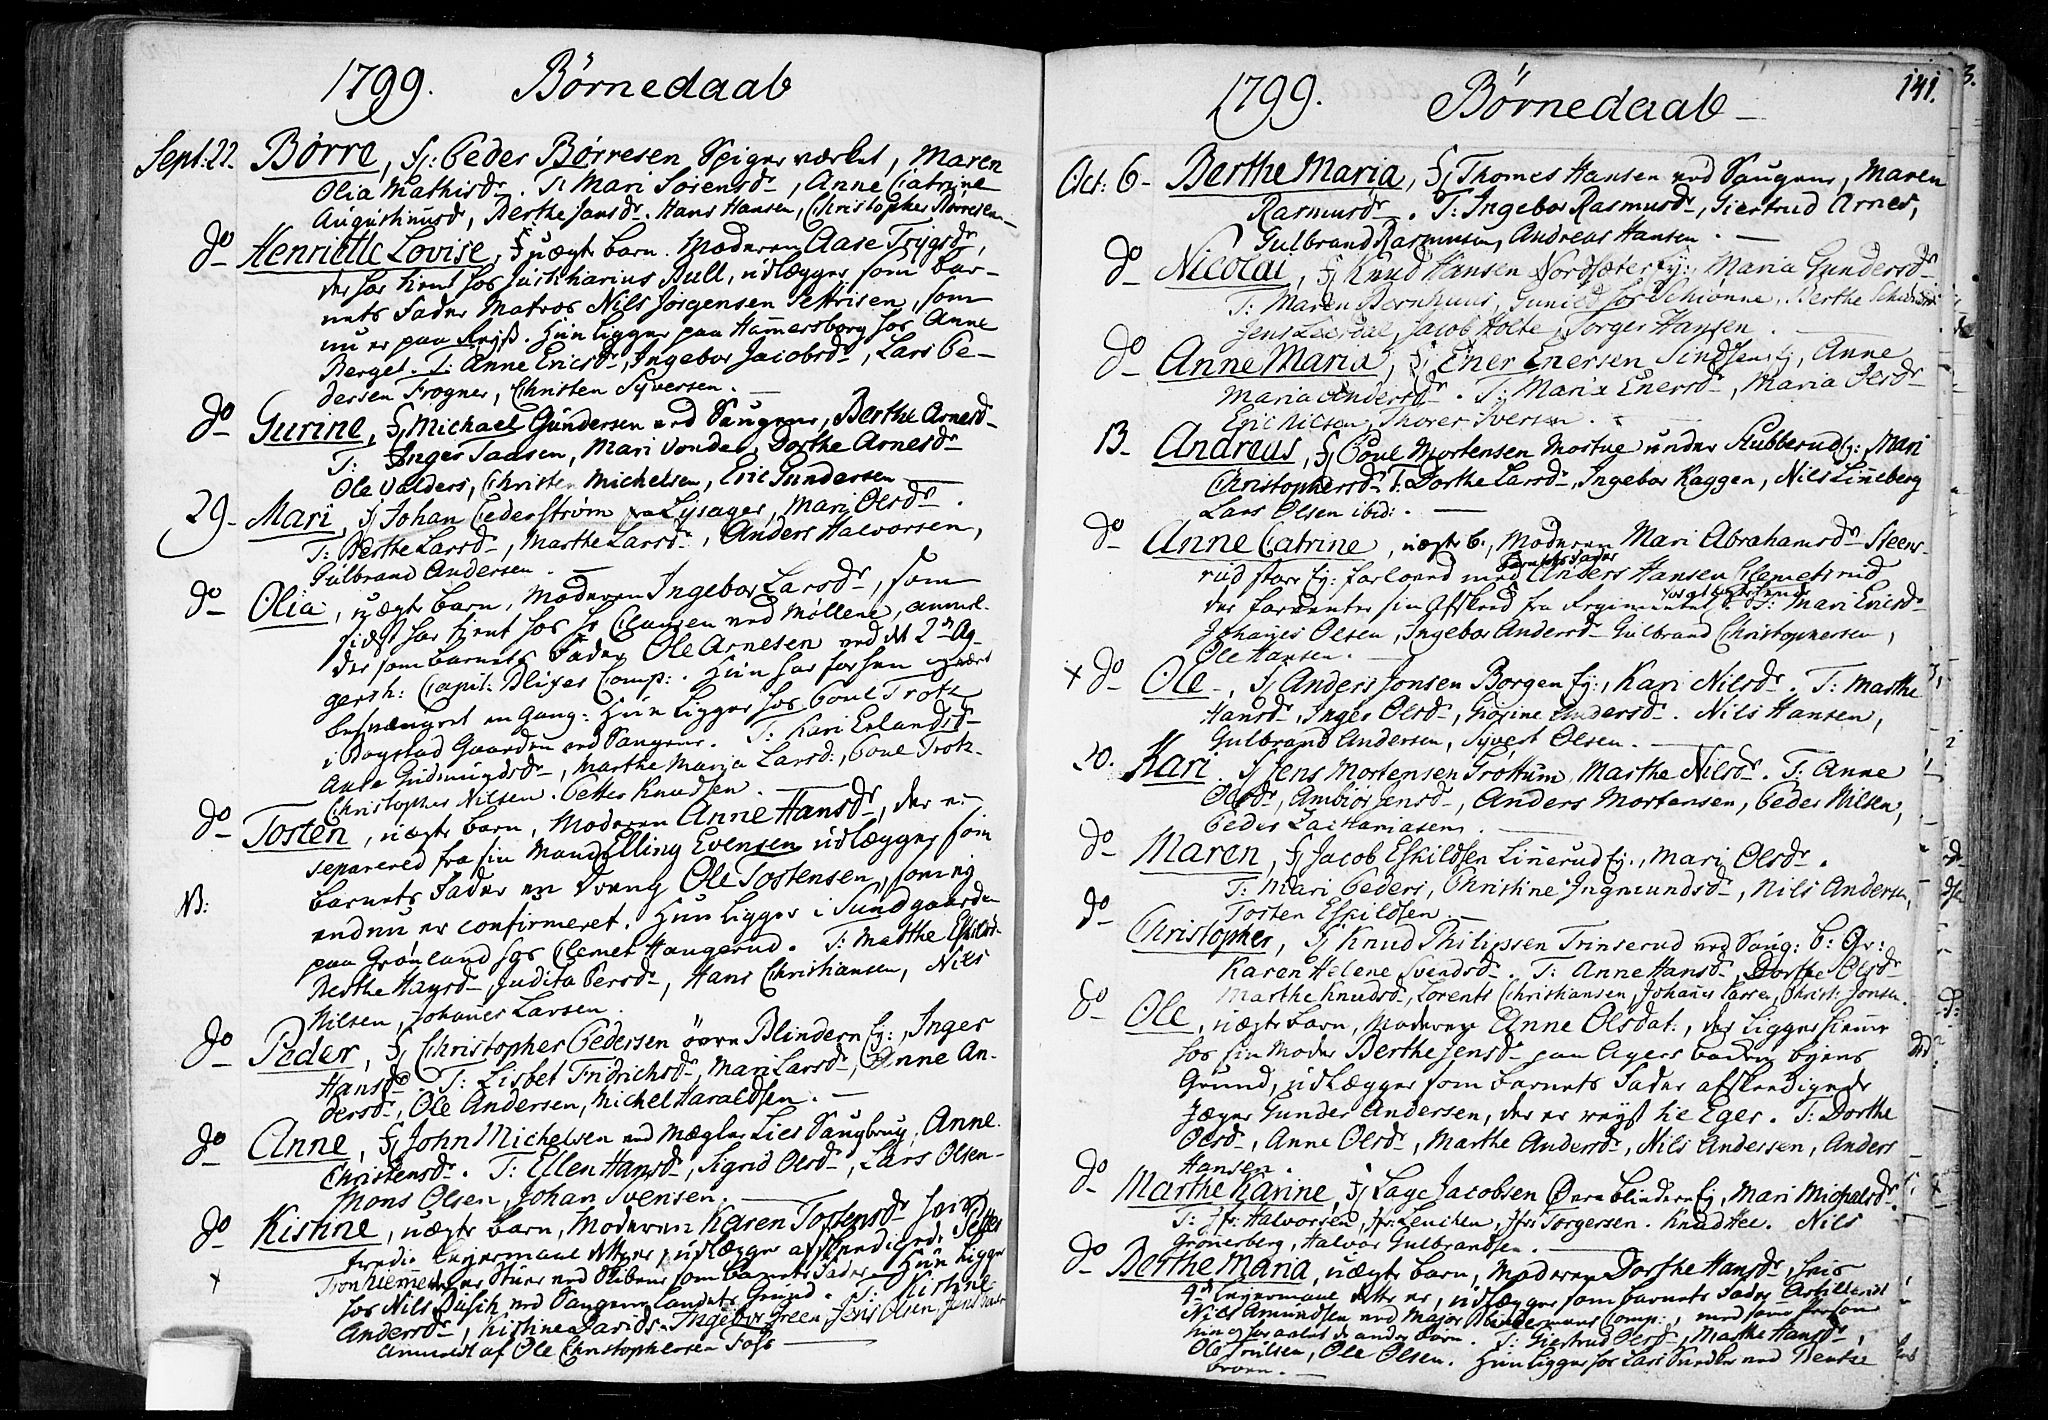 1799. Børnedaab
Sept: 22. Børre, f: Peder Børresen Spigerværket, Maren
Olia Mathisdr. T: Mari Sørensdr, Anne Catrine
Augustinusdr, Berthe Jansdr. Hans Hansen, Christopher Børresen
do Henriette Lovise, uægte barn. Moderen Aase Trygsdr,
der har tient hos Justitiarius Bull, udlægger som bar-
nets Fader Matros Nils Jørgensen, som
nu er paa Rejse. Hun ligger paa Hammersborg hos Anne
Berget. T: Anne Ericsdr, Ingebor Jacobsdr, Lars Pe-
dersen Frogner, Christen Syversen.
do Gurine, f: Michael Gundersen ved Saugene, Berthe Arnesdr
T: Inger Taasen, Mari Vondel, Dorthe Arnesdr
Ole Valders, Christen Michelsen, Eric Gundersen
29. Mari, f: Johan Cederstrøm Lysager, Mari Olsdr.
T: Berthe Larsdr, Marthe Larsdr, Anders Halvorsen,
Gulbrand Andersen.
do Olia, uægte barn, Moderen Ingebor Larsdr, som
sidst har tient hos Hr Clausen ved Møllene, anmel-
der som barnets Fader Ole Arnesen ved det 2det Ag-
gersh: Capit: Blixes Comp:. Hun har forhen været
besvangret en gang: Hun ligger hos Poul Trotz
i Bogstad Gaarden ved Saugene. T: Kari Erlandsdr
Anne Gudmundsdr, Marthe Maria Larsd:, Poul Trotz.
Christopher Nilsen. Petter Knudsen.
do Tosten, uægte barn, Moderen Anne Hansdr, der er
separered fra sin Mand Elling Evensen udlægger som
barnets Fader en dreng Ole Tostensen, som ej
NB: endnu er confirmeret. Hun ligger i Sundgaarden
paa Grønland hos Clemet Haugerud. T: Marthe Eskildsdr
Berthe Hansdr, Judita Persdr, Hans Christiansen, Nils
Nilsen, Johanes Larsen.
do Peder, f: Christopher Pedersen øvre Blindern Ey:, Inger
Hansdr. T: Lisbet Fridrichsdr, Mari Larsdr, Anne An-
dersdr, Ole Andersen, Michel Haraldsen.
do Anne, f: John Michelsen ved Mægler Lies Saugbrug, Anne
Christensdr. T: Ellen Hansdr, Sigrid Olsdr, Lars Olsen
Mons Olsen, Johan Svensen.
do Kistine, uægte barn, Moderen Karen Tostensdr hendes
tredie Leyermaal, udlægger afskediged Petter
+ ved som barnets Fader. Hun ligger
hos Nils ved Saugene Landets Grund. T: Kistine
Andersdr, Kistine Davids, Ingebor Green, Jens Olsen,
Anmeldt af Ole Christophersen Foss
1799. Børnedaab
141.
Oct: 6. Berthe Maria, f: Thomes Hansen ved Saugene, Maren
Rasmusdr. T: Ingebor Rasmusdr, Giertrud Arnes,
Gulbrand Rasmusen, Andreas Hansen.
do Nicolai, f: Knud Hansen Nordsæter Ey:, Maria Gundersdr
T: Maren Bernhuus, Gunild hos Schiønne, Berthe
Jens Leerdal, Jacob Holte, Torger Hansen.
do Anne Maria, f: Ener Enersen Sindsen Ey:, Anne
Maria Andersdr. T: Maria Enersdr, Maria Olsdr
Eric Nilsen, Thorer Iversen.
13. Andreas, f: Poul Mortensen Mostue under Stubberud Ey: Mari
Christophersdr. T: Dorthe Larsdr, Ingebor Kaggen, Nils Linneberg
Lars Olsen ibid:.
do Anne Catrine, uægte b:, Moderen Mari Abrahamsdr Steens-
rud store Ey: forlovet med barnets Fader Anders Hansen Clemetsrud
der forventer sin Afskeed fra Regimentet for at ægte hende. T: Mari Ericsdr
Johanes Olsen, Ingebor Andersdr Gulbrand Christophersen,
Ole Hansen.
+ do Ole, f: Anders Jonsen Borgen Ey:, Kari Nilsdr. T: Marthe
Hansdr, Inger Olsdr, Gorine Andersdr. Nils Hansen,
Gulbrand Andersen, Syvest Olsen.
20. Kari, f: Jens Mortensen Trottum, Marthe Nilsdr. T: Anne
Olsdr, Ambiør Jensdr, Anders Mortensen, Peder Nilsen,
Peder Zachariasen.
do Maren, f: Jacob Eskildsen Linnerud Ey:, Mari Olsdr.
T: Mari Peders, Christine Ingmundsdr, Nils Andersen,
Tosten Eskildsen.
do Christopher, f: Knud Philipsen Trinserud ved Saug: B: Gr:
Karen Helene Svendsdr. T: Anne Hansdr, Dorthe Olsdr
Marthe Knudsdr, Lorents Christiansen, Johanes Larsen, Christ: Jonsen.
do Ole, uægte barn, Moderen Anne Olsdat:, der ligger hiemme
hos sin Moder Berthe Jensdr paa Agers baden byens
Grund, udlægger som barnets Fader afskedigede
Jæger Gunder Andersen, der er reyst til Eger. T: Dorthe
Olsdr, Anne Olsdr, Marthe Andersdr, Nils Andersen, Anders
Hansen.
do Marthe Karine, f: Lage Jacobsen Øvre Blindern Ey, Mari Michelsdr.
T: Jfr: Halvorsen, Jfr: Leuchen, Jfr: Torgersen. Knud Hee. Nils
Grønerberg, Halvor Gulbrandsen.
do Berthe Maria, uægte barn, Moderen Dorthe Hansdr, hvis
4de Leyermaal dette er, udlægger som barnets Fader Artillerist
Nils Amundsen ved Major Comp:, med samme Person
hun og har avlet de andre børn. T: Giertrud Olsdr, Marthe Hansdr,
Ole Troilsen, Ole Olsen. Hun ligger hos Lars ved Bentse
broen.